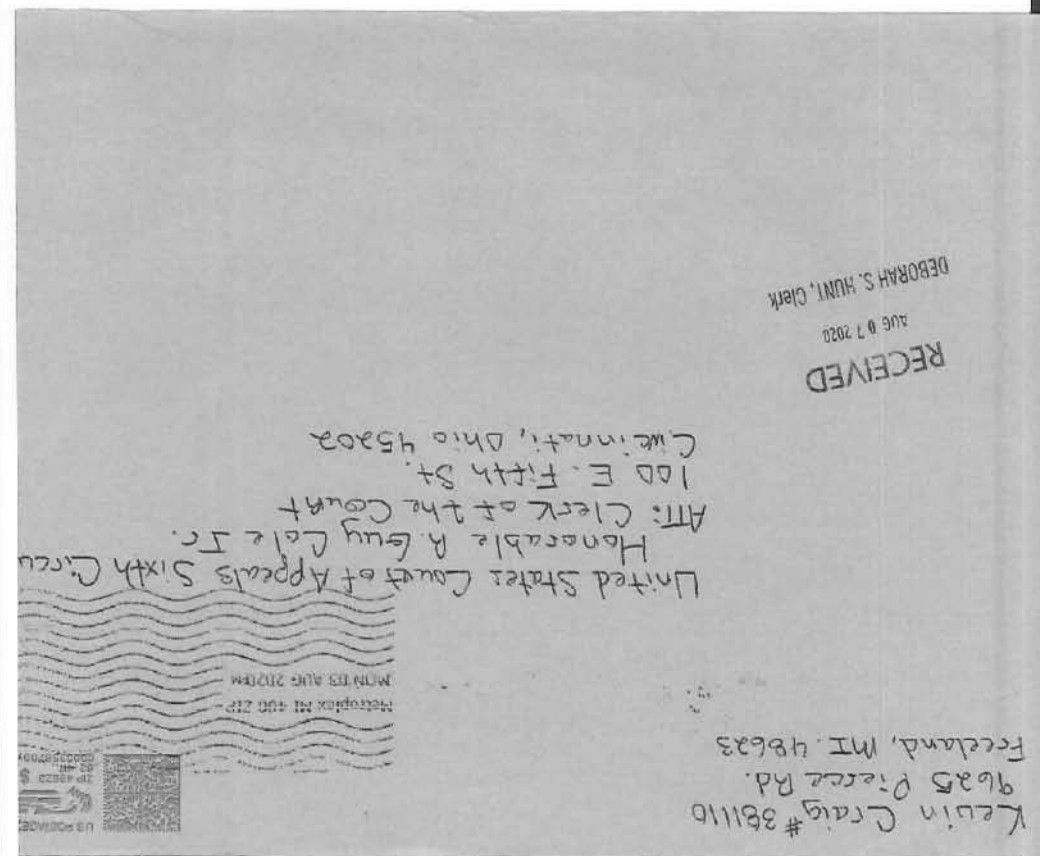 Kevin Craig #381110
9625 Pierce Rd.
Freeland, MI. 48623
US POSTAGE
ZIP 48623 $
Metroplex MI 480 ZIP
MON 03 AUG 2020 PM
United States Court of Appeals Sixth Circu
Honorable R. Guy Cole Jr.
Att: Clerk of the Court
100 E. Fifth St.
Cincinnati, Ohio 45202
RECEIVED
AUG 07 2020
DEBORAH S. HUNT, Clerk